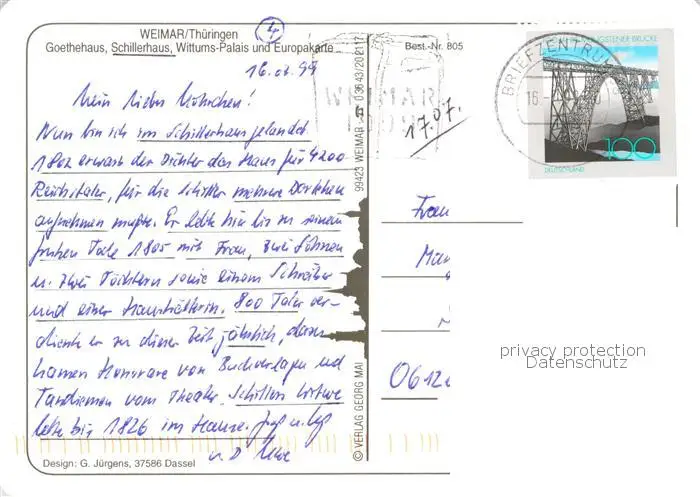 WEIMAR/Thüringen
4
Goethehaus, Schillerhaus, Wittums-Palais und Europakarte
Best.-Nr. 805
16.07.99
Mein liebes !
Nun bin ich im Schillerhaus gelandet.
1802 erwarb der Dichter das Haus für 4200
Reichstaler, für die Schiller mehrere Darlehen
aufnehmen mußte. Er lebte hier bis zu seinem
frühen Tode 1805 mit Frau, zwei Söhnen
u. zwei Töchtern sowie einem Schreiber
und einer Haushälterin. 800 Taler ver-
diente er zu dieser Zeit jährlich, dazu
kamen Honorare von Buchverlagen und
Tantiemen vom Theater. Schillers Witwe
lebte bis 1826 im Hause. Gruß u.
u.
Design: G. Jürgens, 37586 Dassel
© VERLAG GEORG MAI 99423 WEIMAR 03643/202117
WEIMAR
17.07.
BRIEFZENTRUM
16
DEUTSCHLAND
100
Frau
0612
privacy protection
Datenschutz